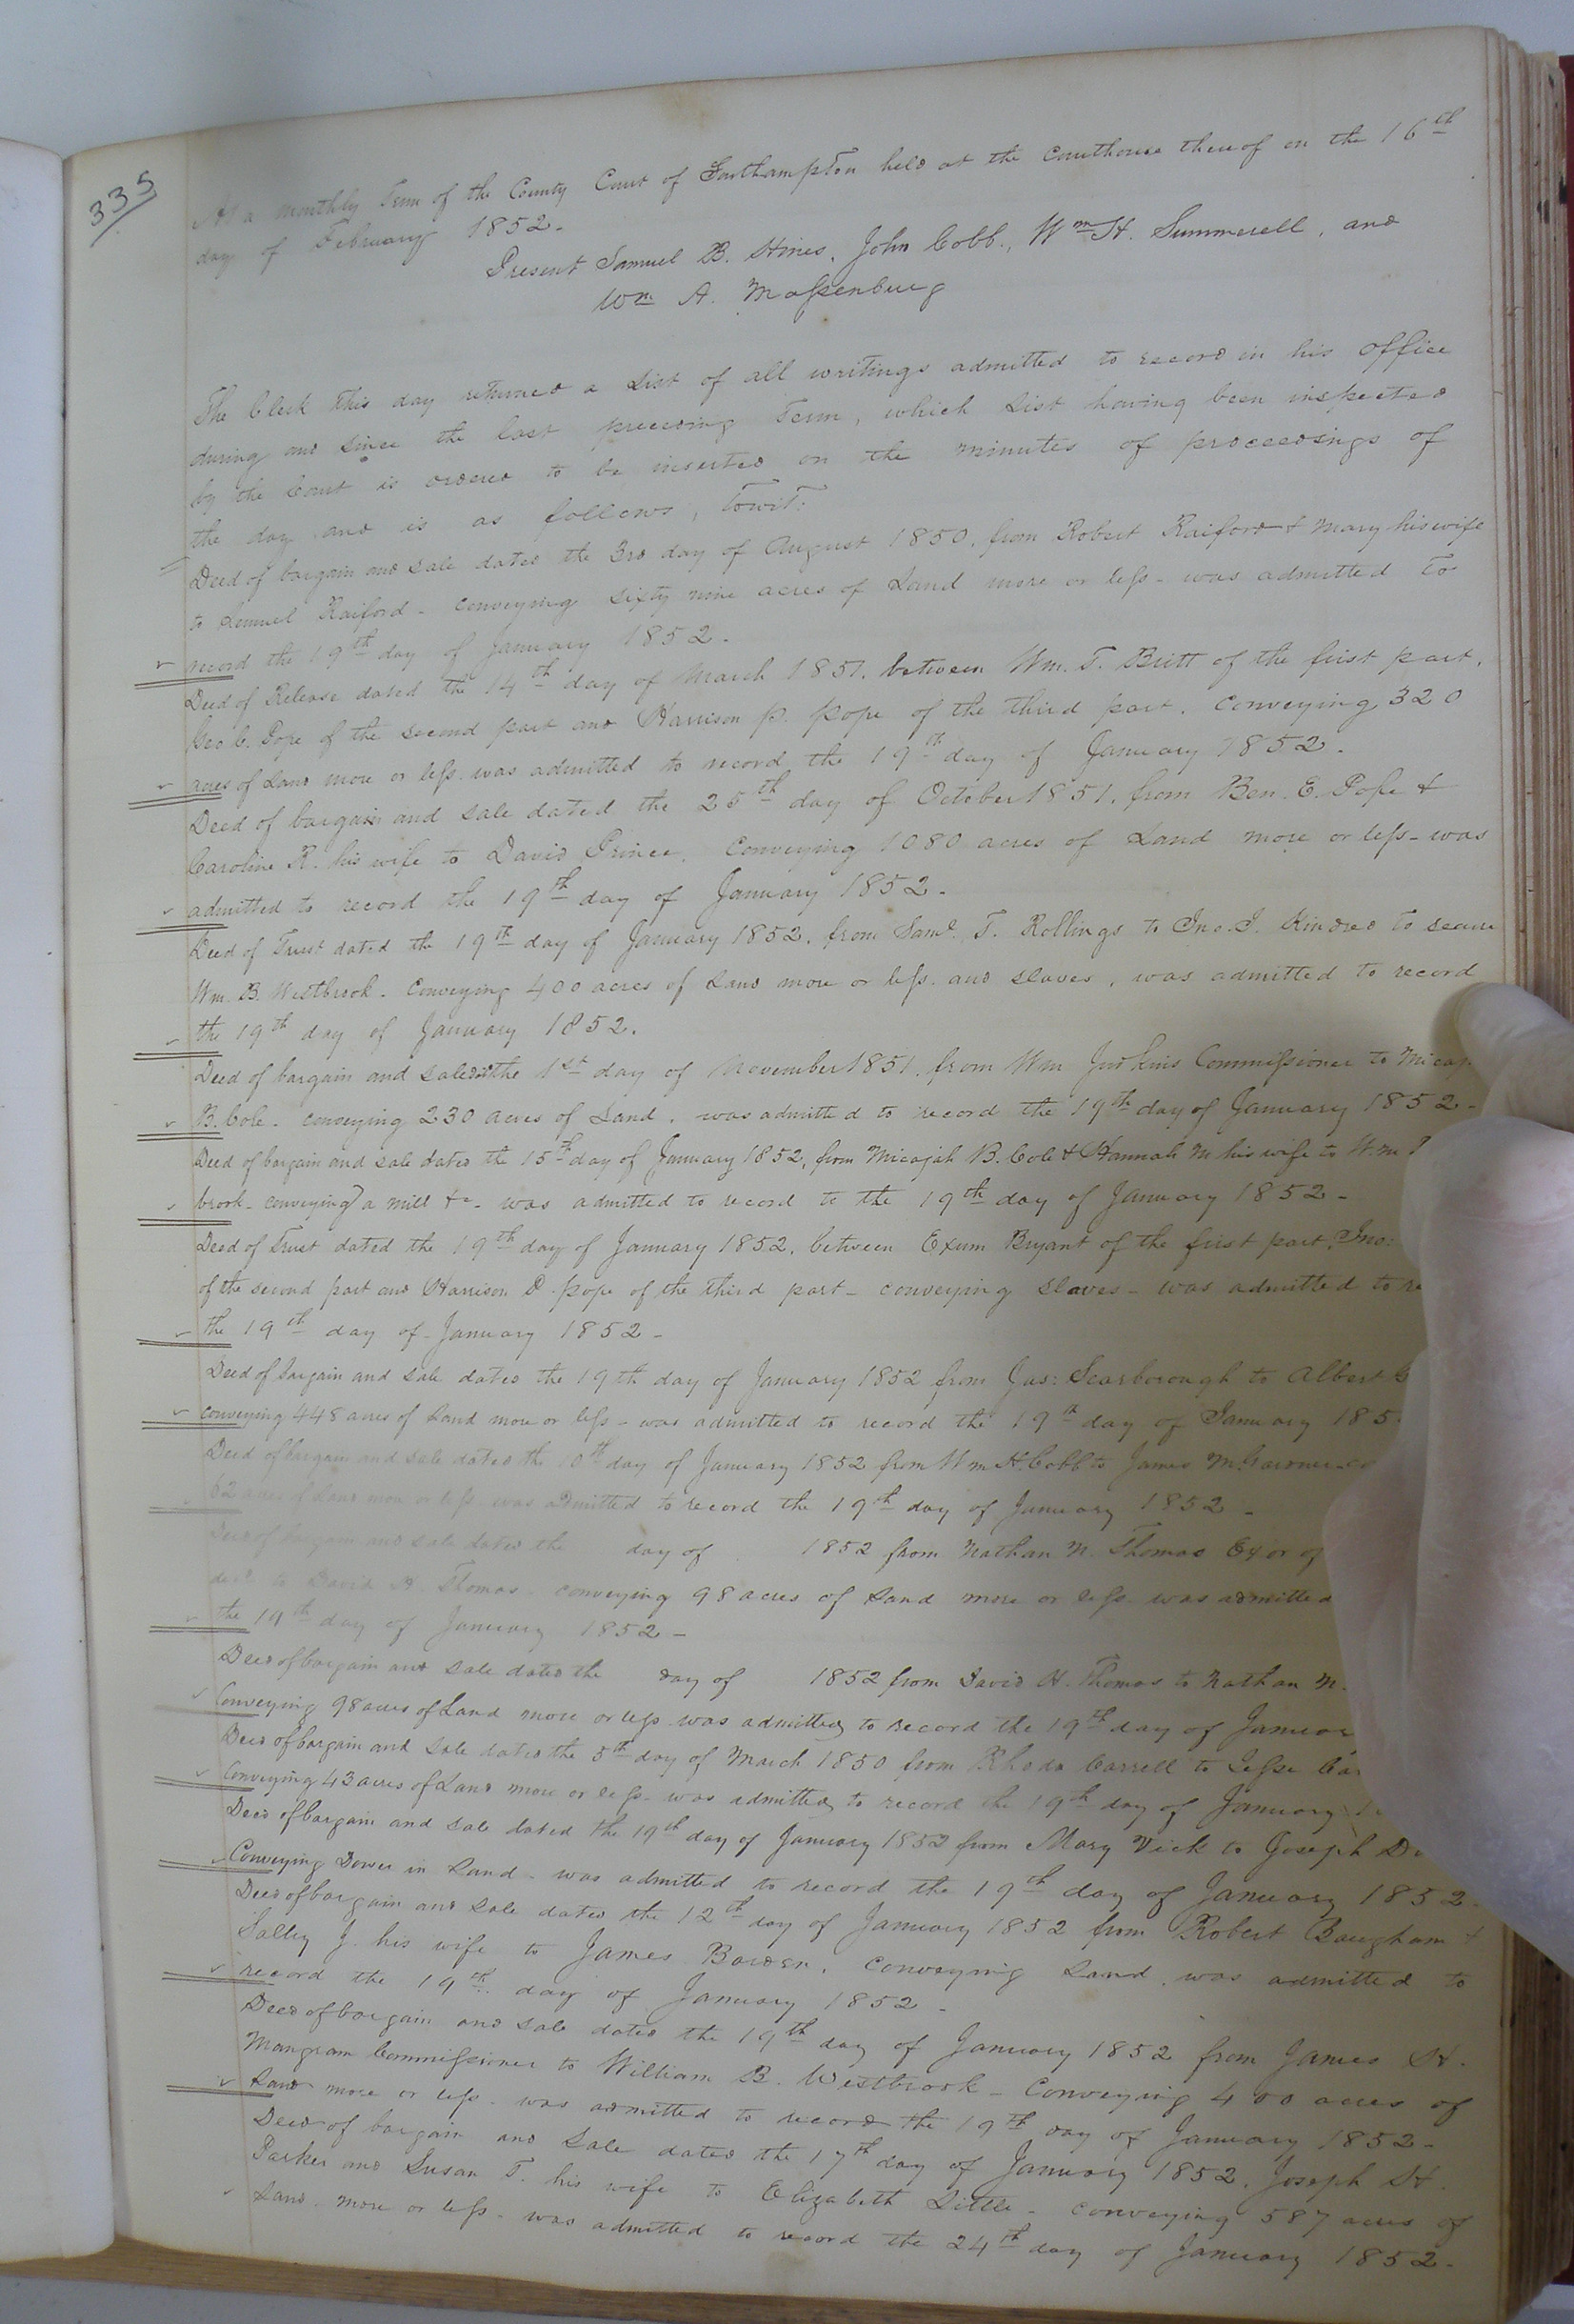 335
At a monthly Term of the County Court of Southampton held at the Courthouse thereof on the 16th
day of February 1852.
Present Samuel B. Hines, John Cobb, Wm H. Summerell, and
Wm A. Massenburg
The Clerk this day returned a List of all writings admitted to record in his office
during and since the last preceding Term, which List having been inspected
by the Court is ordered to be inserted on the minutes of proceedings of
the day and is as follows, Towit:
Deed of bargain and sale dated the 3rd day of August 1850, from Robert Raiford & Mary his wife
to Lemuel Raiford - conveying sixty nine acres of Land more or less - was admitted to
record the 19th day of January 1852.
Deed of Release dated the 14th day of March 1851, between Wm. T. Britt of the first part,
Geo C. Pope of the second part and Harrison P. Pope of the third part. Conveying 320
acres of Land more or less. was admitted to record the 19th day of January 1852.
Deed of bargain and sale dated the 25th day of October 1851, from Ben. E. Pope &
Caroline R. his wife to David Prince. Conveying 1080 acres of Land more or less - was
admitted to record the 19th day of January 1852.
Deed of Trust dated the 19th day of January 1852, from Saml. T. Rollings to Jno. J. Kindred to secure
Wm. B. Westbrook. Conveying 400 acres of Land more or less. and slaves, was admitted to record
the 19th day of January 1852.
Deed of bargain and sale dated the 1st day of November 1851, from Wm Judkins Commissioner to Micaj
B. Cole. conveying 230 acres of Land. was admitted to record the 19th day of January 1852-
Deed of bargain and sale dated the 15th day of January 1852, from Micajah B. Cole & Hannah M his wife to Wm
brook - conveying a mill &c - was admitted to record to the 19th day of January 1852-
Deed of Trust dated the 19th day of January 1852, between Exum Bryant of the first part, Jno:
of the second part and Harrison D. Pope of the third part - conveying slaves - was admitted to re
the 19th day of January 1852-
Deed of bargain and sale dated the 19th day of January 1852 from Jas: Scarborough to Albert G
conveying 448 acres of Land more or less - was admitted to record the 19th day of January 185
Deed of bargain and sale dated the 10th day of January 1852 from Wm H. Cobb to James M. Gardner co
62 acres of Land more or less was admitted to record the 19th day of January 1852-
Deed of bargain and sale dated the day of 1852 from Nathan N. Thomas Exor of
decd to David H. Thomas - conveying 98 acres of Land more or less was admitted
the 19th day of January 1852-
Deed of bargain and sale dated the day of 1852 from David H. Thomas to Nathan N.
Conveying 98 acres of Land more or less was admitted to record the 19th day of Januar
Deed of bargain and sale dated the 5th day of March 1850 from Rhoda Carrell to Jesse Car
Conveying 43 acres of Land more or less - was admitted to record the 19th day of January
Deed of bargain and sale dated the 19th day of January 1852 from Mary Vick to Joseph
Conveying Dower in Land - was admitted to record the 19th day of January 1852.
Deed of bargain and sale dated the 12th day of January 1852 from Robert Baugham &
Salley J. his wife to James Bowden, conveying Land. was admitted to
record the 19th day of January 1852-
Deed of bargain and sale dated the 19th day of January 1852 from James H.
Mangram Commissioner to William B. Westbrook - Conveying 400 acres of
Land more or less. was admitted to record the 19th day of January 1852-
Deed of bargain and sale dated the 17th day of January 1852, Joseph H.
Parker and Susan T. his wife to Elizabeth Little - conveying 587 acres of
Land more or less - was admitted to record the 24th day of January 1852.